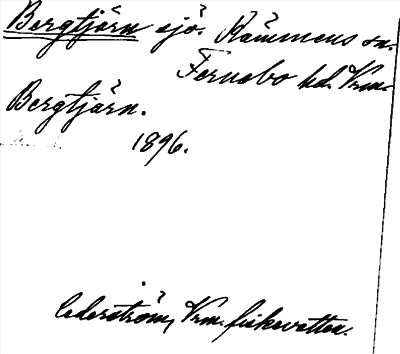 Bergtjärn sjö. Rämmens sn.
Fernebo hd. Vrm.
Bergtjärn.
1896.
Cederström, Vrm. fiskevatten.